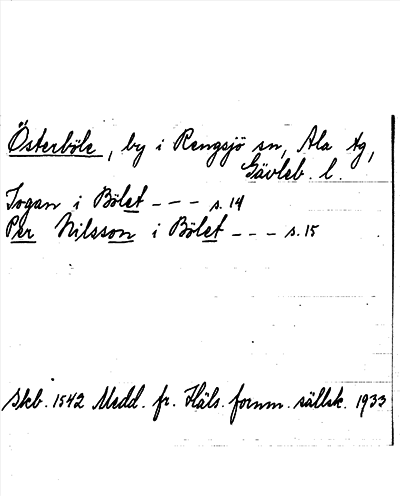 Österböle, by i Rengsjö sn, Ala tg,
Gävleb. l.
Jogan i Bölet - - - s. 14
Per Nilsson i Bölet - - - s. 15
Skb. 1542 Medd. fr. Häls. fornm. sällsk. 1933